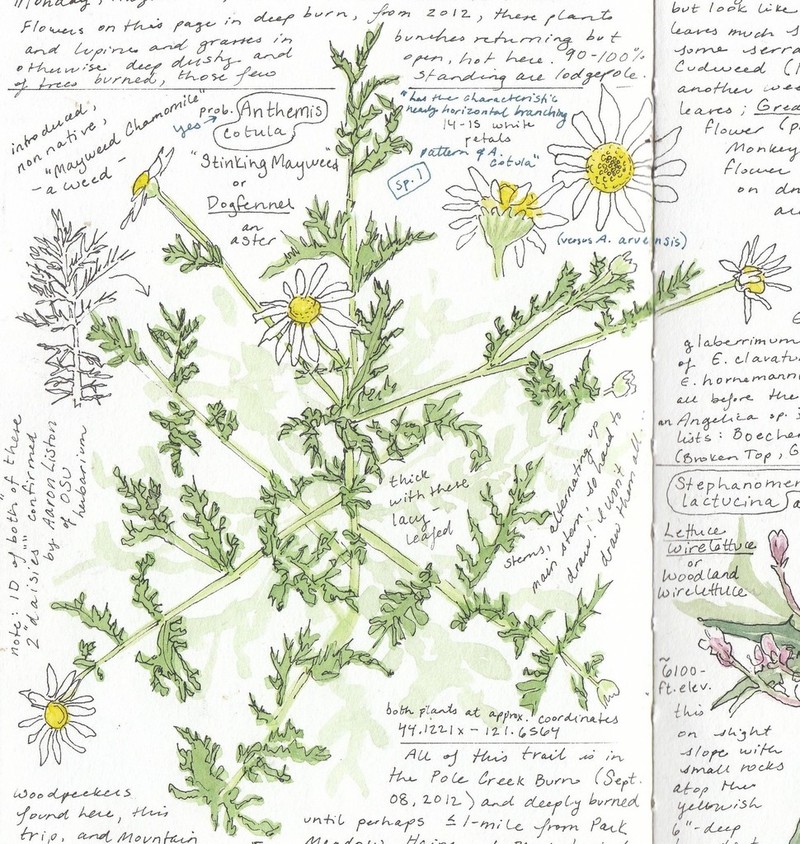 Flowers on this page in deep burn, from 2012, these plants
and lupines and grasses in
otherwise deep dusty and
of trees burned, those few
bunches returning but
open, hot here. 90-100%
standing are lodgepole.
introduced,
non native,
"Mayweed Chamomile"
- a weed -
yes → prob. Anthemis
cotula
"Stinking Mayweed"
or
Dogfennel
an
aster
"has the characteristic
nearly horizontal branching
14-15 white
petals
pattern of A.
cotula"
sp. 1
(versus A. arvensis)
note: ID of both of these
2 "daisies" confirmed
by Aaron Liston
of OSU
herbarium
thick
with these
lacy-
leafed
stems, alternating up
main stem, so hard to
draw! i won't
draw them all...
both plants at approx. coordinates
44.1221 x -121.6564
All of this trail is in
the Pole Creek Burn (Sept.
08, 2012) and deeply burned
until perhaps ≤ 1-mile from Park
woodpeckers
found here, this
trip, and Mountain
but look like
leaves much
some
Cudweed
another
leaves;
flower
Monkey
flower
on
glaberrimum
of E. clavatu
E. hornemann
all before the
an Angelica sp.
lists: Boeche
(Broken Top,
Stephanomer
lactucina
Lettuce
wirelettuce
or
Woodland
wirelettuce
~6100-
ft. elev.
this
on slight
slope with
small rocks
atop the
yellowish
6"-deep